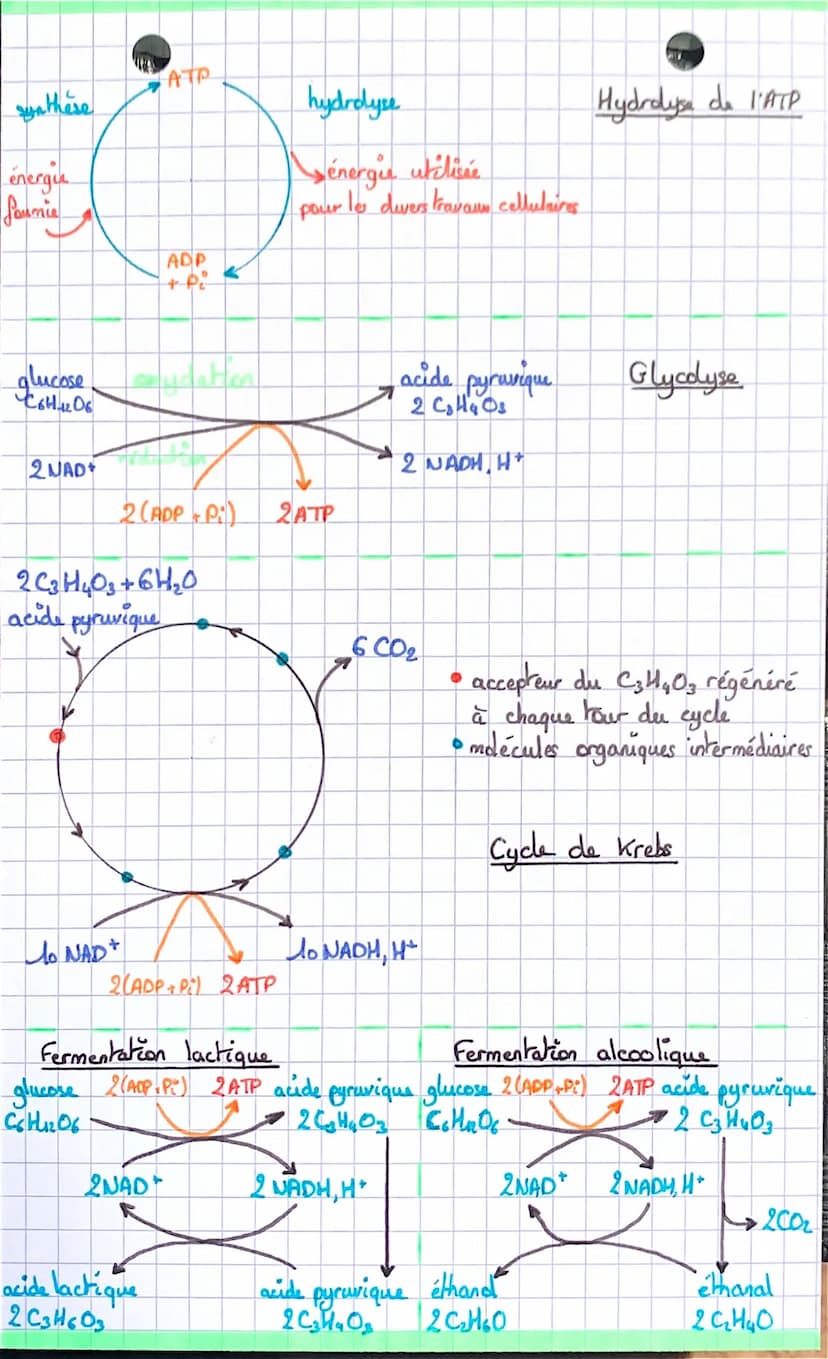 ATP
synthèse
hydrolyse
Hydrolyse de l'ATP
énergie
fournie
énergie utilisée
pour les divers travaux cellulaires
ADP
+ Pi
glucose
C6H12O6
oxydation
acide pyruvique
2 C3H4O3
Glycolyse
2 NAD+
réduction
2 NADH, H+
2(ADP + Pi)
2ATP
2C3H4O3 + 6H2O
acide pyruvique
6 CO2
• accepteur du C3H4O3 régénéré
à chaque tour du cycle
• molécules organiques intermédiaires
Cycle de Krebs
10 NAD+
10 NADH, H+
2(ADP + Pi)
2ATP
Fermentation lactique
glucose
2(ADP + Pi)
2ATP
acide pyruvique
C6H12O6
2C3H4O3
2NAD+
2 NADH, H+
acide lactique
2 C3H6O3
acide pyruvique
2C3H4O3
Fermentation alcoolique
glucose
2(ADP+Pi)
2ATP
acide pyruvique
C6H12O6
2 C3H4O3
2NAD+
2NADH, H+
2CO2
éthanol
2 C2H6O
éthanal
2 C2H4O